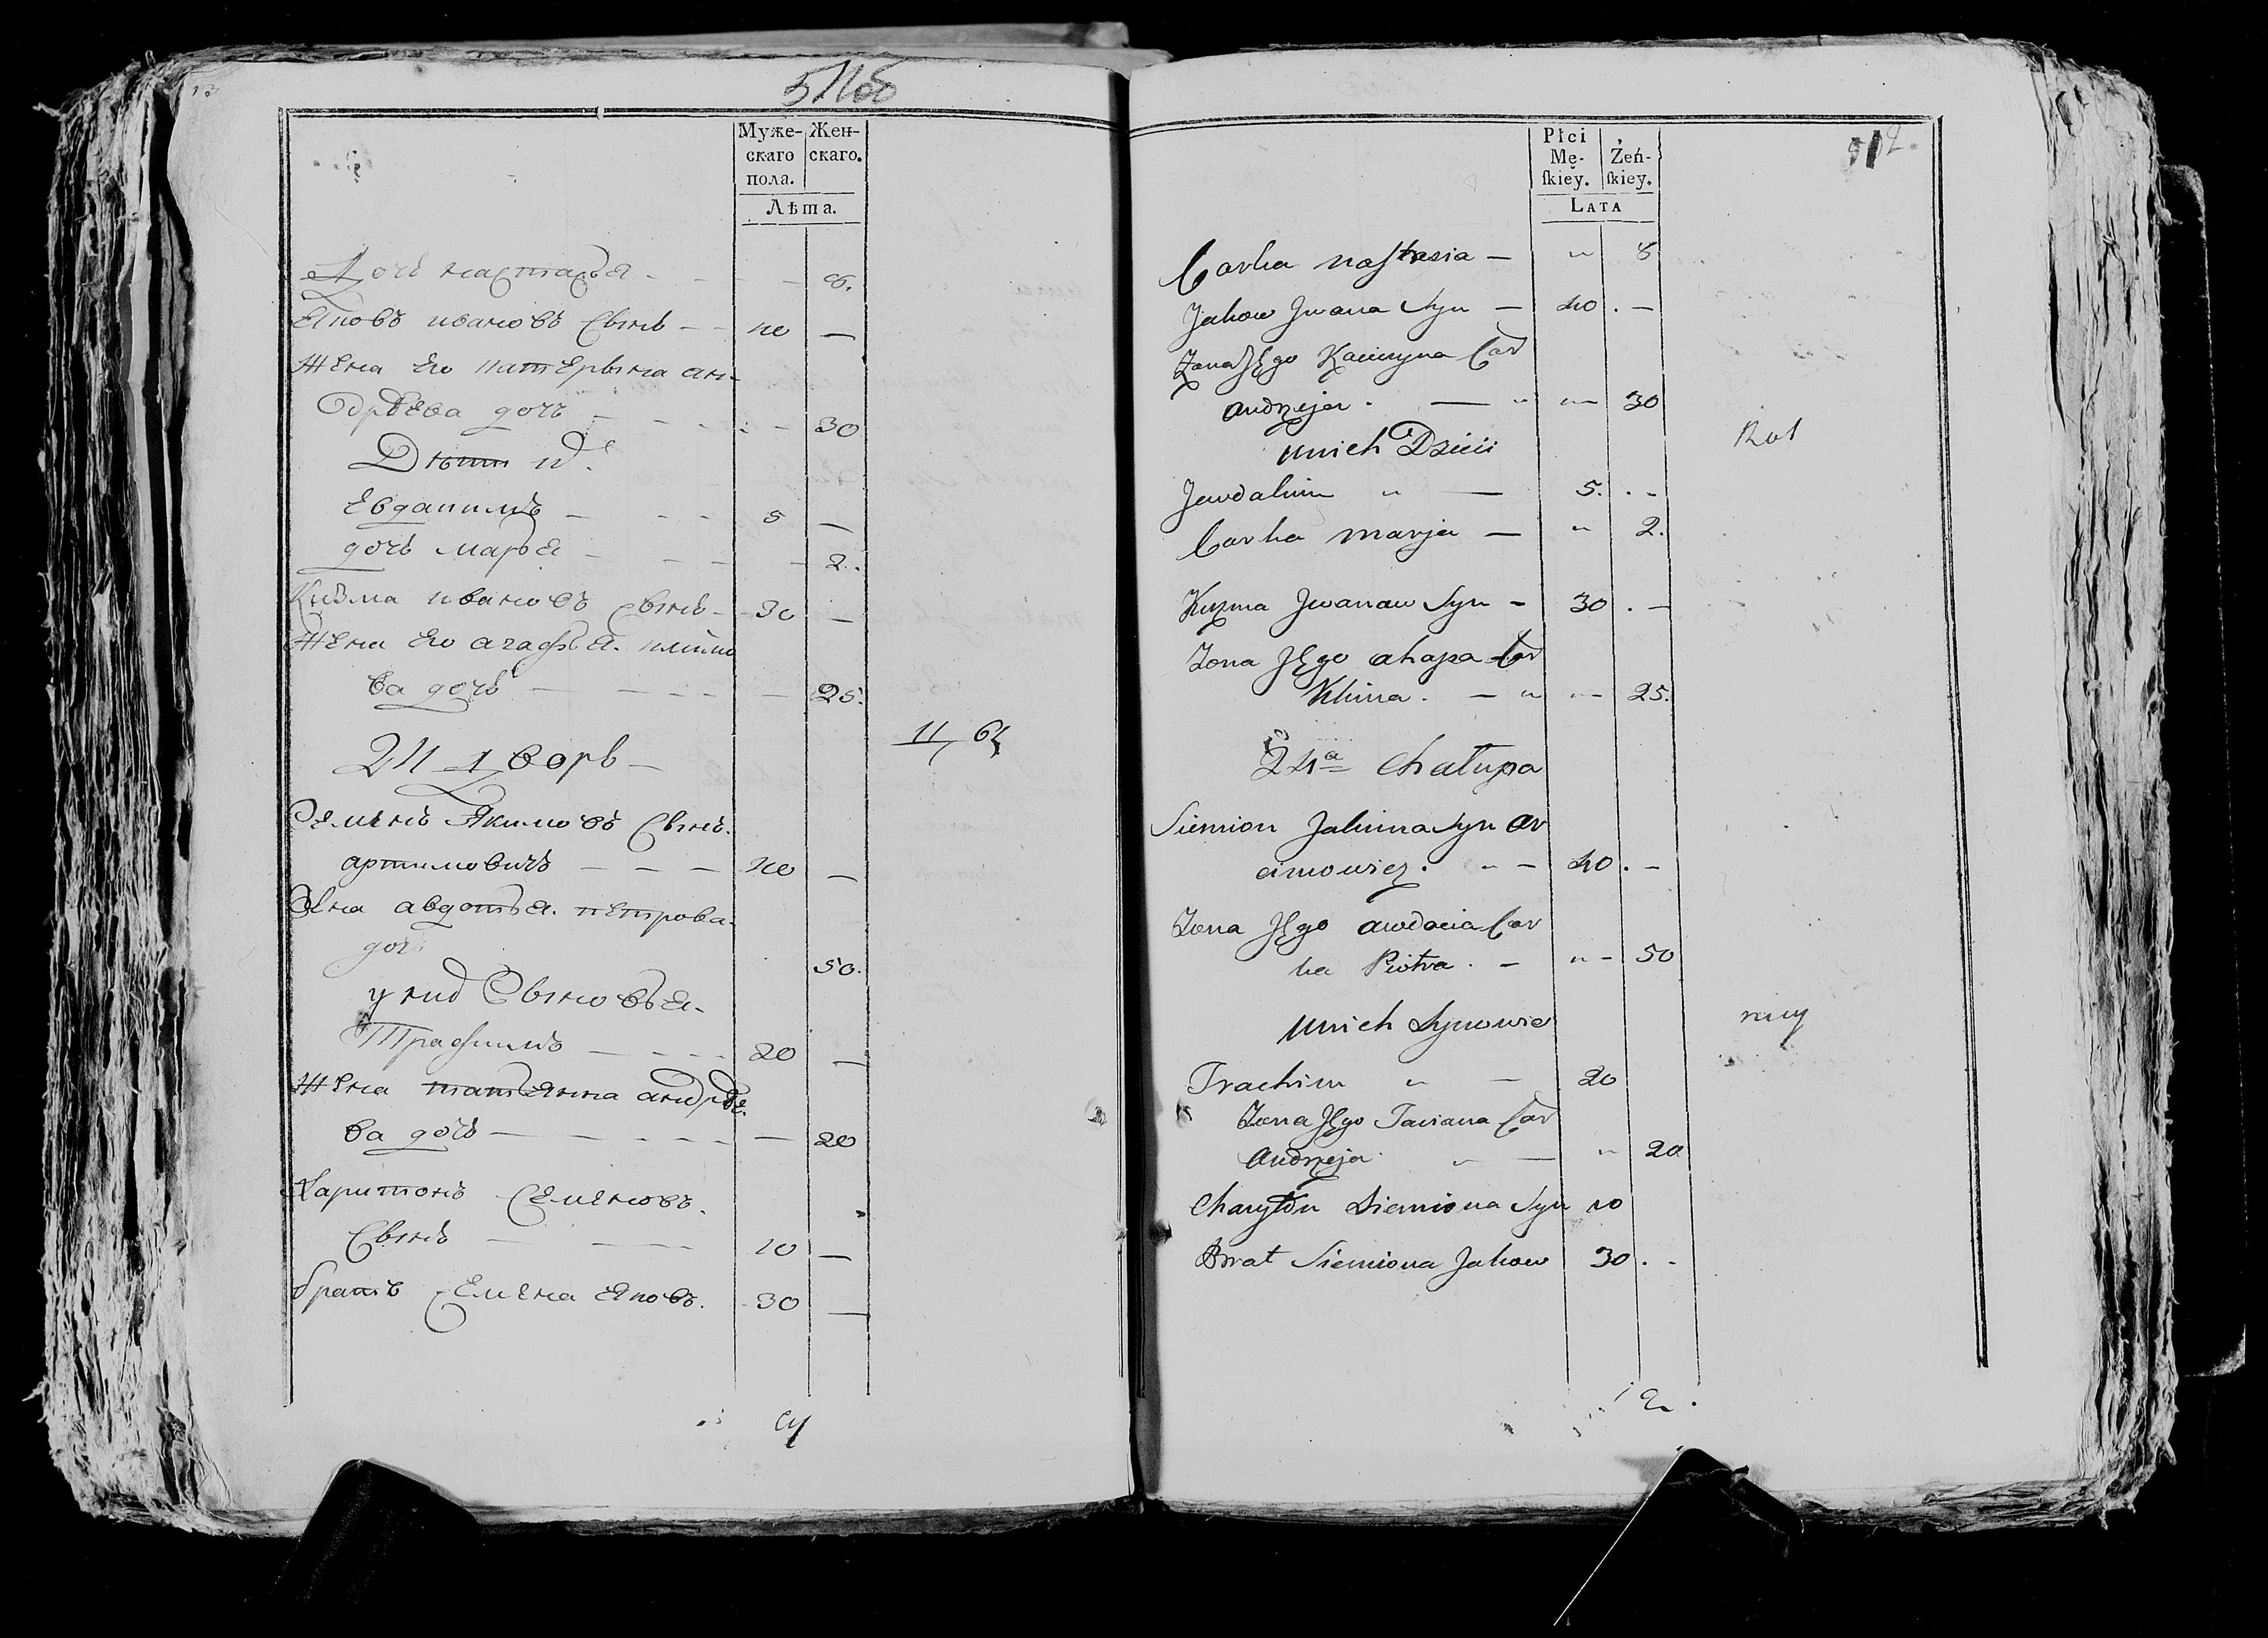 511об
Муже- Жен-
скаго скаго.
пола.
Лѣта.
Дочь настасья - - - 8.
Яковъ ивановъ Сынъ - - 40 —
Жена Его катерына ан-
дрѣева дочь - - - - 30
Дѣти их
Евдакимъ - - - 5 —
дочь марья - - - - 2.
Кузма ивановъ сынъ - 30 —
Жена Его агафья. климо
ва дочь — - - - — 25.
24 Дворъ —
11, 6
Семенъ Якимовъ Сынъ.
артимовичъ — — — 40 —
Жена авдотья. петрова.
дочь 50.
у них Сыновья.
Трафимъ — - - - 20 —
Жена татьянна андрѣе.
ва дочь — - - - — 20
Харитонъ Семеновъ.
Сынъ — — 10 —
братъ Семена Яковъ. 30 —
512.
Płci
Mę- Żeń-
ſkiey. ſkiey.
LATA
Corka nastasia — " 8
Jakow Jwana Syn — 40 . —
Zona Jego Kacieryna Cor
Andrzeja . — " "— 30
unich Dzieci
Jewdakim " — 5. . -
Corka marja — " 2.
Kuzma Jwanaw Syn - 30 . —
Zona Jego ahapa Cor
Klima . — " "— 25.
24a Chałupa
Siemion Jakima Syn Ar
cimowicz . " — 40 . —
Zona Jego awdocia Cor
ka Piotra . — " — 50
unich Synowie
Trachim " — 20
Zona Jego Taciana Cor
Andrzeja . " — " 20
Charyton Siemiona Syn 10
Brat Siemiona Jakow 30 . -